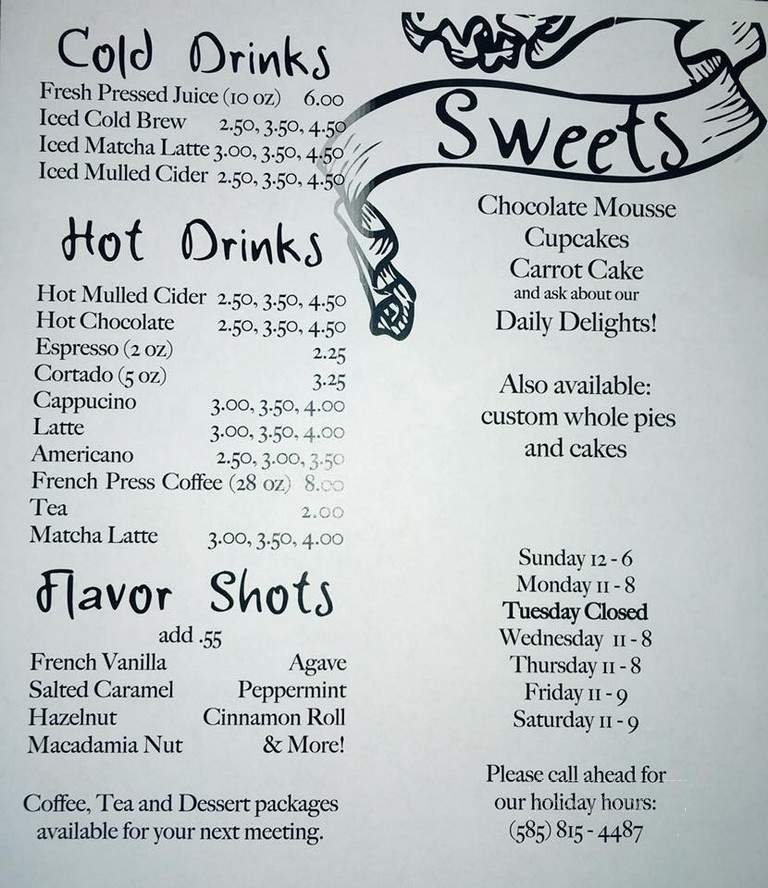 Cold Drinks
Fresh Pressed Juice (10 oz) 6.00
Iced Cold Brew 2.50, 3.50, 4.50
Iced Matcha Latte 3.00, 3.50, 4.50
Iced Mulled Cider 2.50, 3.50, 4.50
Hot Drinks
Hot Mulled Cider 2.50, 3.50, 4.50
Hot Chocolate 2.50, 3.50, 4.50
Espresso (2 oz) 2.25
Cortado (5 oz) 3.25
Cappucino 3.00, 3.50, 4.00
Latte 3.00, 3.50, 4.00
Americano 2.50, 3.00, 3.50
French Press Coffee (28 oz) 8.00
Tea 2.00
Matcha Latte 3.00, 3.50, 4.00
Flavor Shots
add .55
French Vanilla Agave
Salted Caramel Peppermint
Hazelnut Cinnamon Roll
Macadamia Nut & More!
Coffee, Tea and Dessert packages
available for your next meeting.
Sweets
Chocolate Mousse
Cupcakes
Carrot Cake
and ask about our
Daily Delights!
Also available:
custom whole pies
and cakes
Sunday 12 - 6
Monday 11 - 8
Tuesday Closed
Wednesday 11 - 8
Thursday 11 - 8
Friday 11 - 9
Saturday 11 - 9
Please call ahead for
our holiday hours:
(585) 815 - 4487